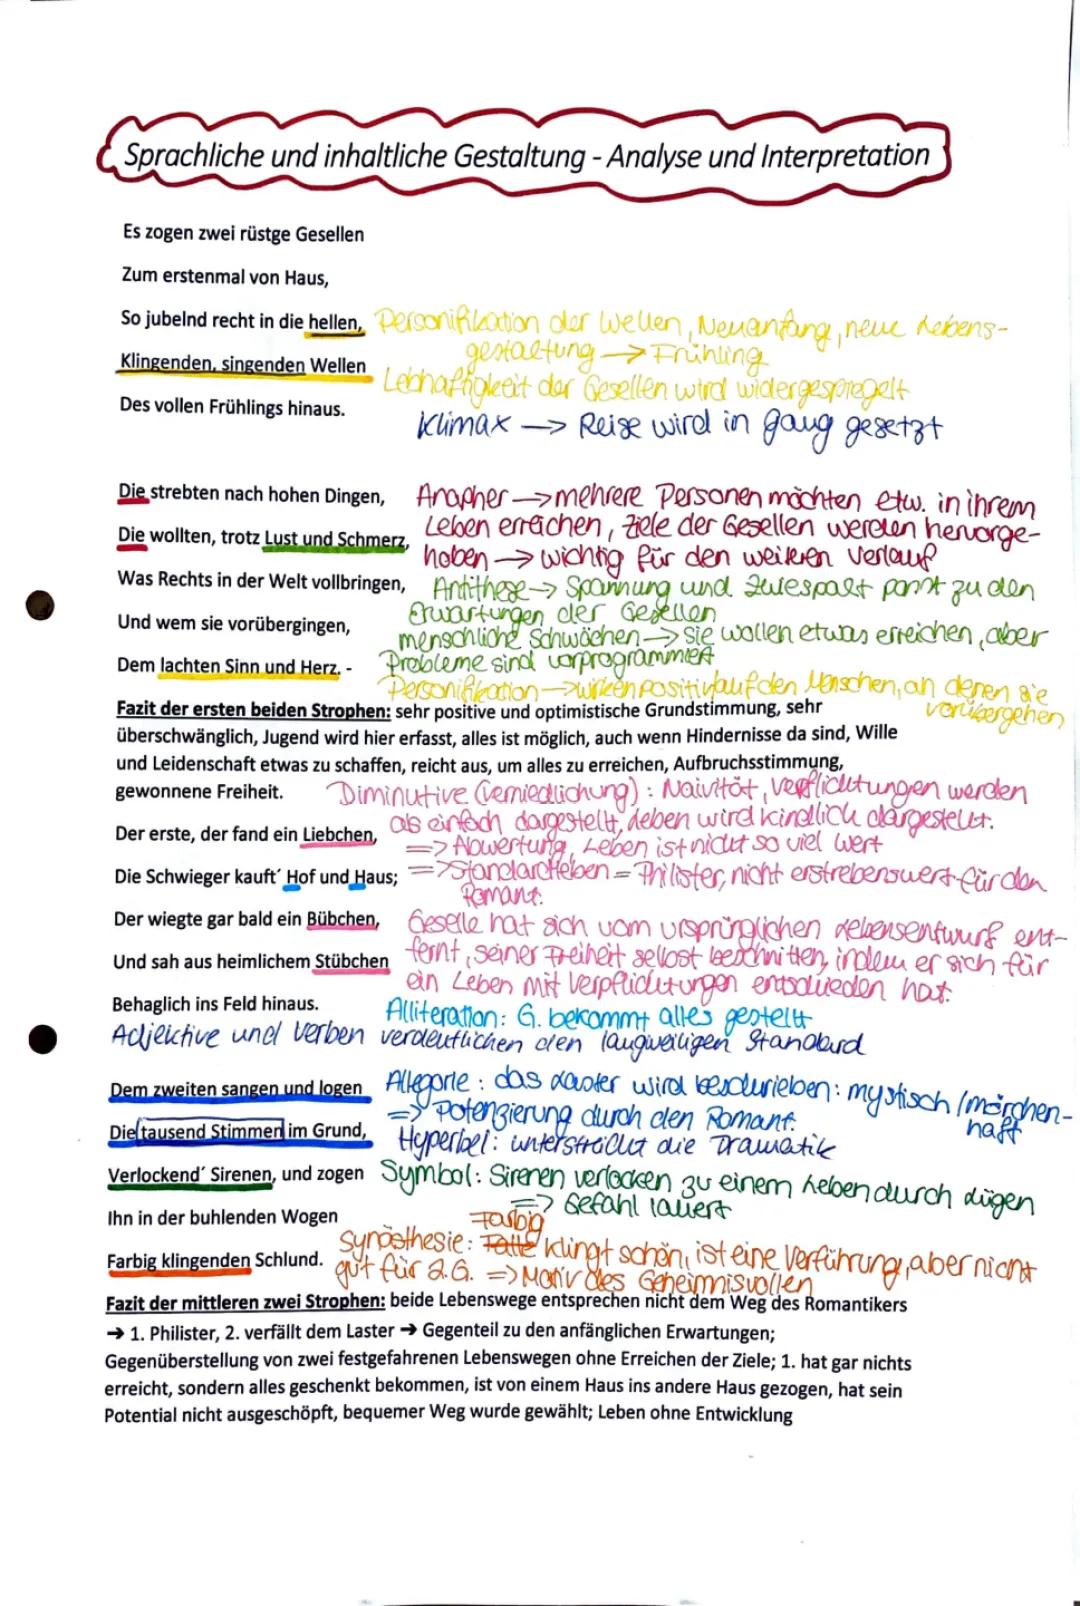 Sprachliche und inhaltliche Gestaltung - Analyse und Interpretation
Es zogen zwei rüstge Gesellen
Zum erstenmal von Haus,
So jubelnd recht in die hellen, Personifikation der Wellen, Neuanfang, neue Lebens-
gestaltung → Frühling
Klingenden, singenden Wellen
Lebhaftigkeit der Gesellen wird widergespiegelt
Des vollen Frühlings hinaus.
Klimax → Reise wird in gang gesetzt
Die strebten nach hohen Dingen, Anapher → mehrere Personen möchten etw. in ihrem
Die wollten, trotz Lust und Schmerz, Leben erreichen, Ziele der Gesellen werden hervorge-
hoben → wichtig für den weiteren Verlauf
Was Rechts in der Welt vollbringen, Antithese → Spannung und Zwiespalt passt zu den
Erwartungen der Gesellen
Und wem sie vorübergingen,
menschliche Schwächen → sie wollen etwas erreichen, aber
Dem lachten Sinn und Herz. - Probleme sind vorprogrammiert
Personifikation → wirken positiv auf den Menschen, an denen sie
vorübergehen
Fazit der ersten beiden Strophen: sehr positive und optimistische Grundstimmung, sehr
überschwänglich, Jugend wird hier erfasst, alles ist möglich, auch wenn Hindernisse da sind, Wille
und Leidenschaft etwas zu schaffen, reicht aus, um alles zu erreichen, Aufbruchsstimmung,
gewonnene Freiheit. Diminutive (Verniedlichung): Naivität, Verpflichtungen werden
als einfach dargestellt, Leben wird kindlich dargestellt.
Der erste, der fand ein Liebchen,
=> Abwertung, Leben ist nicht so viel wert
Die Schwieger kauft´ Hof und Haus; => Standardleben = Philister, nicht erstrebenswert für den
Romant.
Der wiegte gar bald ein Bübchen, Geselle hat sich vom ursprünglichen Lebensentwurf ent-
Und sah aus heimlichem Stübchen fernt, seiner Freiheit selbst beschnitten, indem er sich für
ein Leben mit Verpflichtungen entschieden hat.
Behaglich ins Feld hinaus. Alliteration: G. bekommt alles gestellt
Adjektive und Verben verdeutlichen den langweiligen Standard
Dem zweiten sangen und logen Allegorie: das Laster wird beschrieben: mystisch/märchen-
haft
=> Potenzierung durch den Romant.
Die tausend Stimmen im Grund, Hyperbel: unterstreicht die Dramatik
Verlockend´ Sirenen, und zogen Symbol: Sirenen verlocken zu einem Leben durch Lügen
=> Gefahl lauert
Ihn in der buhlenden Wogen
Farbig
Farbig klingenden Schlund. Synästhesie: klingt schön, ist eine Verführung, aber nicht
gut für 2.G. => Motiv des Geheimnisvollen
Fazit der mittleren zwei Strophen: beide Lebenswege entsprechen nicht dem Weg des Romantikers
→ 1. Philister, 2. verfällt dem Laster → Gegenteil zu den anfänglichen Erwartungen;
Gegenüberstellung von zwei festgefahrenen Lebenswegen ohne Erreichen der Ziele; 1. hat gar nichts
erreicht, sondern alles geschenkt bekommen, ist von einem Haus ins andere Haus gezogen, hat sein
Potential nicht ausgeschöpft, bequemer Weg wurde gewählt; Leben ohne Entwicklung